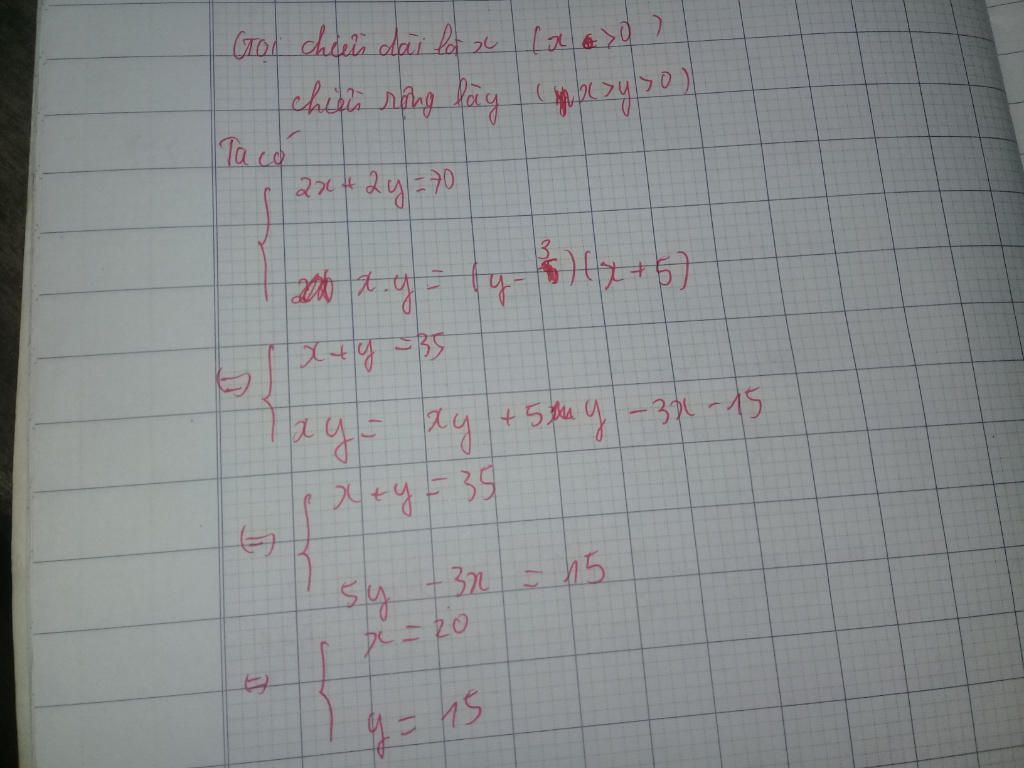 Gọi chiều dài là x (x >0)
chiều rộng là y (x>y>0)
Ta có
2x + 2y = 70
x.y = (y-3)(x+5)
<=> x+y = 35
xy = xy + 5y - 3x - 15
<=> x+y = 35
5y - 3x = 15
<=> x = 20
y = 15